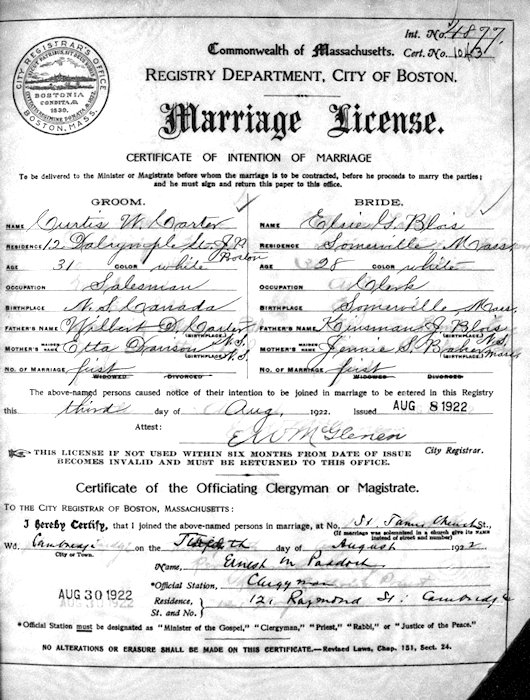 Int. No. 4877
Commonwealth of Massachusetts. Cert. No. 1043
CITY REGISTRAR'S OFFICE
BOSTON, MASS.
BOSTONIA
CONDITA A.D.
1630.
REGISTRY DEPARTMENT, CITY OF BOSTON.
Marriage License.
CERTIFICATE OF INTENTION OF MARRIAGE
To be delivered to the Minister or Magistrate before whom the marriage is to be contracted, before he proceeds to marry the parties;
and he must sign and return this paper to this office.
GROOM. BRIDE.
NAME Curtis W. Carter NAME Elsie G. Blois
RESIDENCE 12 Dalrymple St. J.P. Boston RESIDENCE Somerville Mass
AGE 31 COLOR white AGE 28 COLOR white
OCCUPATION Salesman OCCUPATION Clerk
BIRTHPLACE N.S. Canada BIRTHPLACE Somerville, Mass.
FATHER'S NAME Wilbert D. Carter (BIRTHPLACE) N.S. FATHER'S NAME Kinsman J. Blois (BIRTHPLACE) N.S.
MOTHER'S MAIDEN NAME Etta Davison (BIRTHPLACE) N.S. MOTHER'S MAIDEN NAME Jennie S. Baker (BIRTHPLACE) Mass
NO. OF MARRIAGE first WIDOWED DIVORCED NO. OF MARRIAGE first WIDOWED DIVORCED
The above-named persons caused notice of their intention to be joined in marriage to be entered in this Registry
this third day of Aug. 1922. Issued AUG 8 1922
Attest:
E W McGlenen
City Registrar.
THIS LICENSE IF NOT USED WITHIN SIX MONTHS FROM DATE OF ISSUE
BECOMES INVALID AND MUST BE RETURNED TO THIS OFFICE.
Certificate of the Officiating Clergyman or Magistrate.
TO THE CITY REGISTRAR OF BOSTON, MASSACHUSETTS:
I Hereby Certify, that I joined the above-named persons in marriage, at No. St. James Church St.,
(If marriage was solemnized in a church give its NAME
instead of street and number)
Wd. Cambridge on the day of August 1922
City or Town.
Name, Ernest M Paddock
*Official Station, Clergyman
AUG 30 1922
Residence, St. and No. 121 Raymond St. Cambridge
*Official Station must be designated as "Minister of the Gospel," "Clergyman," "Priest," "Rabbi," or "Justice of the Peace."
NO ALTERATIONS OR ERASURE SHALL BE MADE ON THIS CERTIFICATE.—Revised Laws, Chap. 151, Sect. 24.